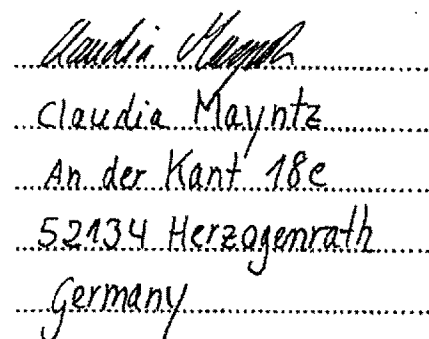 Claudia Mayntz
Claudia Mayntz
An der Kant 18e
52134 Herzogenrath
Germany